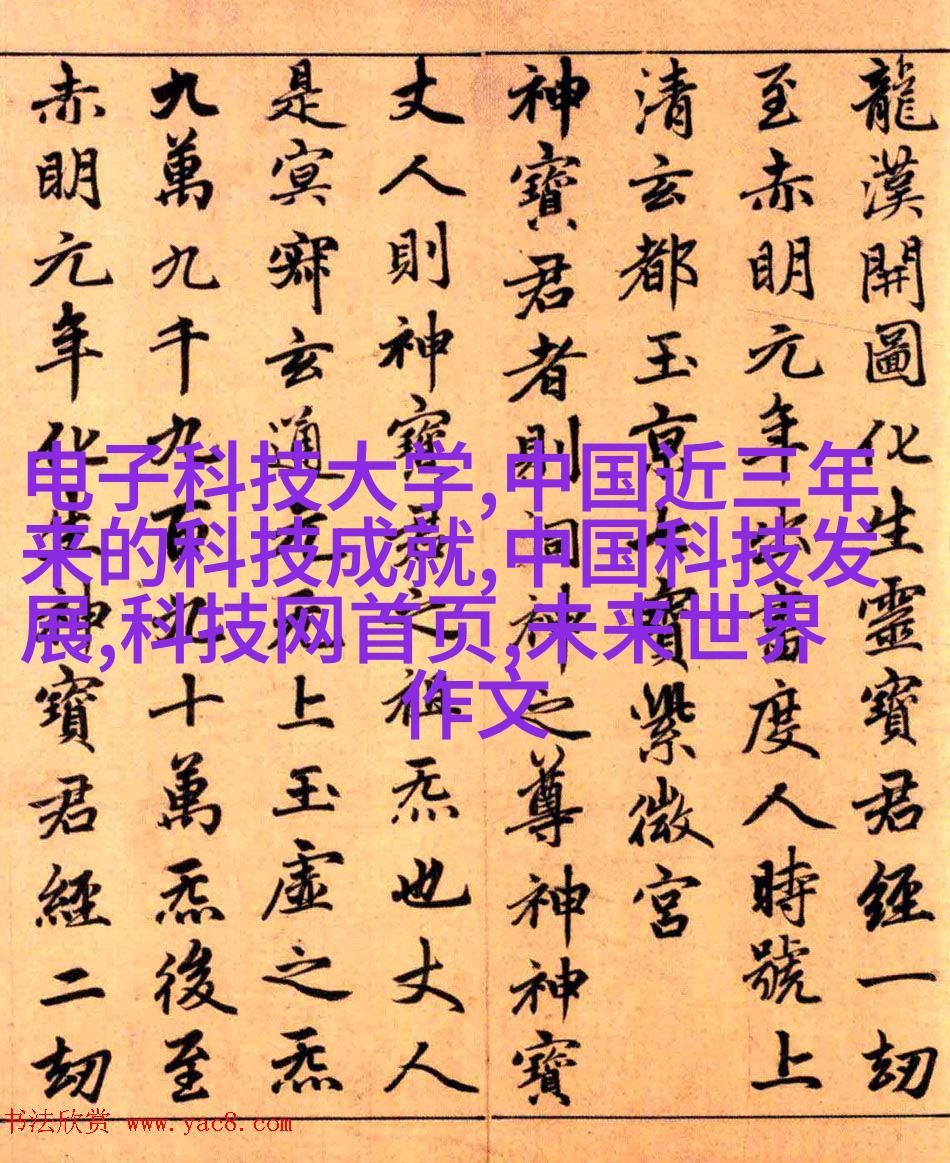 龍漢開圖化生靈寶君經一劫
至赤明元年出書度人時號上
清玄都玉京七寶紫微宮
神寶君者則洞神之尊神神寶
丈人則神寶君之祖炁也丈人
是冥寂玄通元无上玉虛之炁
九萬九千九百九十萬炁後至
赤明元年化生神寶君經二劫
电子科技大学,中国近三年
来的科技成就,中国科技发
展,科技网首页,未来世界
作文
书法欣赏 www.yac8.com